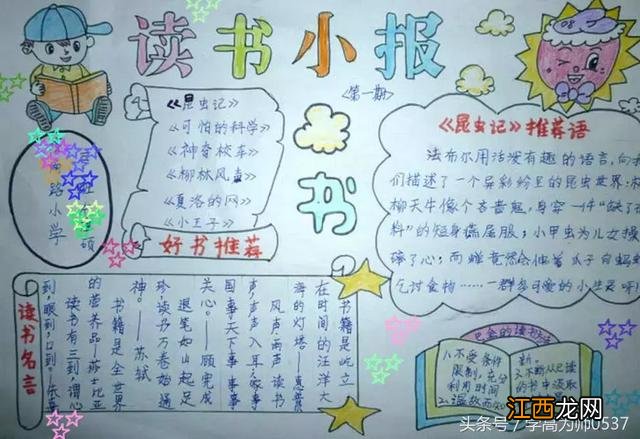 读书小报
08
《第一期》
书
《昆虫记》
《可怕的科学》
《神奇校车》
《柳林风声》
《夏洛的网》
《小王子》
好书推荐
路小学
《昆虫记》推荐语
法布尔用活没有趣的语言,向
们描述了一个异彩纷呈的昆虫世界:
柳天牛像个吝啬鬼,身穿一件“缺了
料”的短身燕尾服;小甲虫为儿女操
碎了心;而蝉竟然会
乞讨食物……一群多可爱的小生灵呀!
读书名言
书籍是屹立
在时间的汪洋大
海的灯塔——惠普
风声雨声读书
声声声入耳,家事
国事天下事事事
关心。——顾宪成
退笔如山起足
珍,读书万卷始通
神。——苏轼
书籍是全世界
的营养品——莎士比亚
读书有三到,谓心
到,眼到,口到。
巴金的读书方法
1.不受条件
限制,充分
利用时间
2.温故而
2.不断从已读
的书中汲取
江西龙网
头条号/学高为师0537